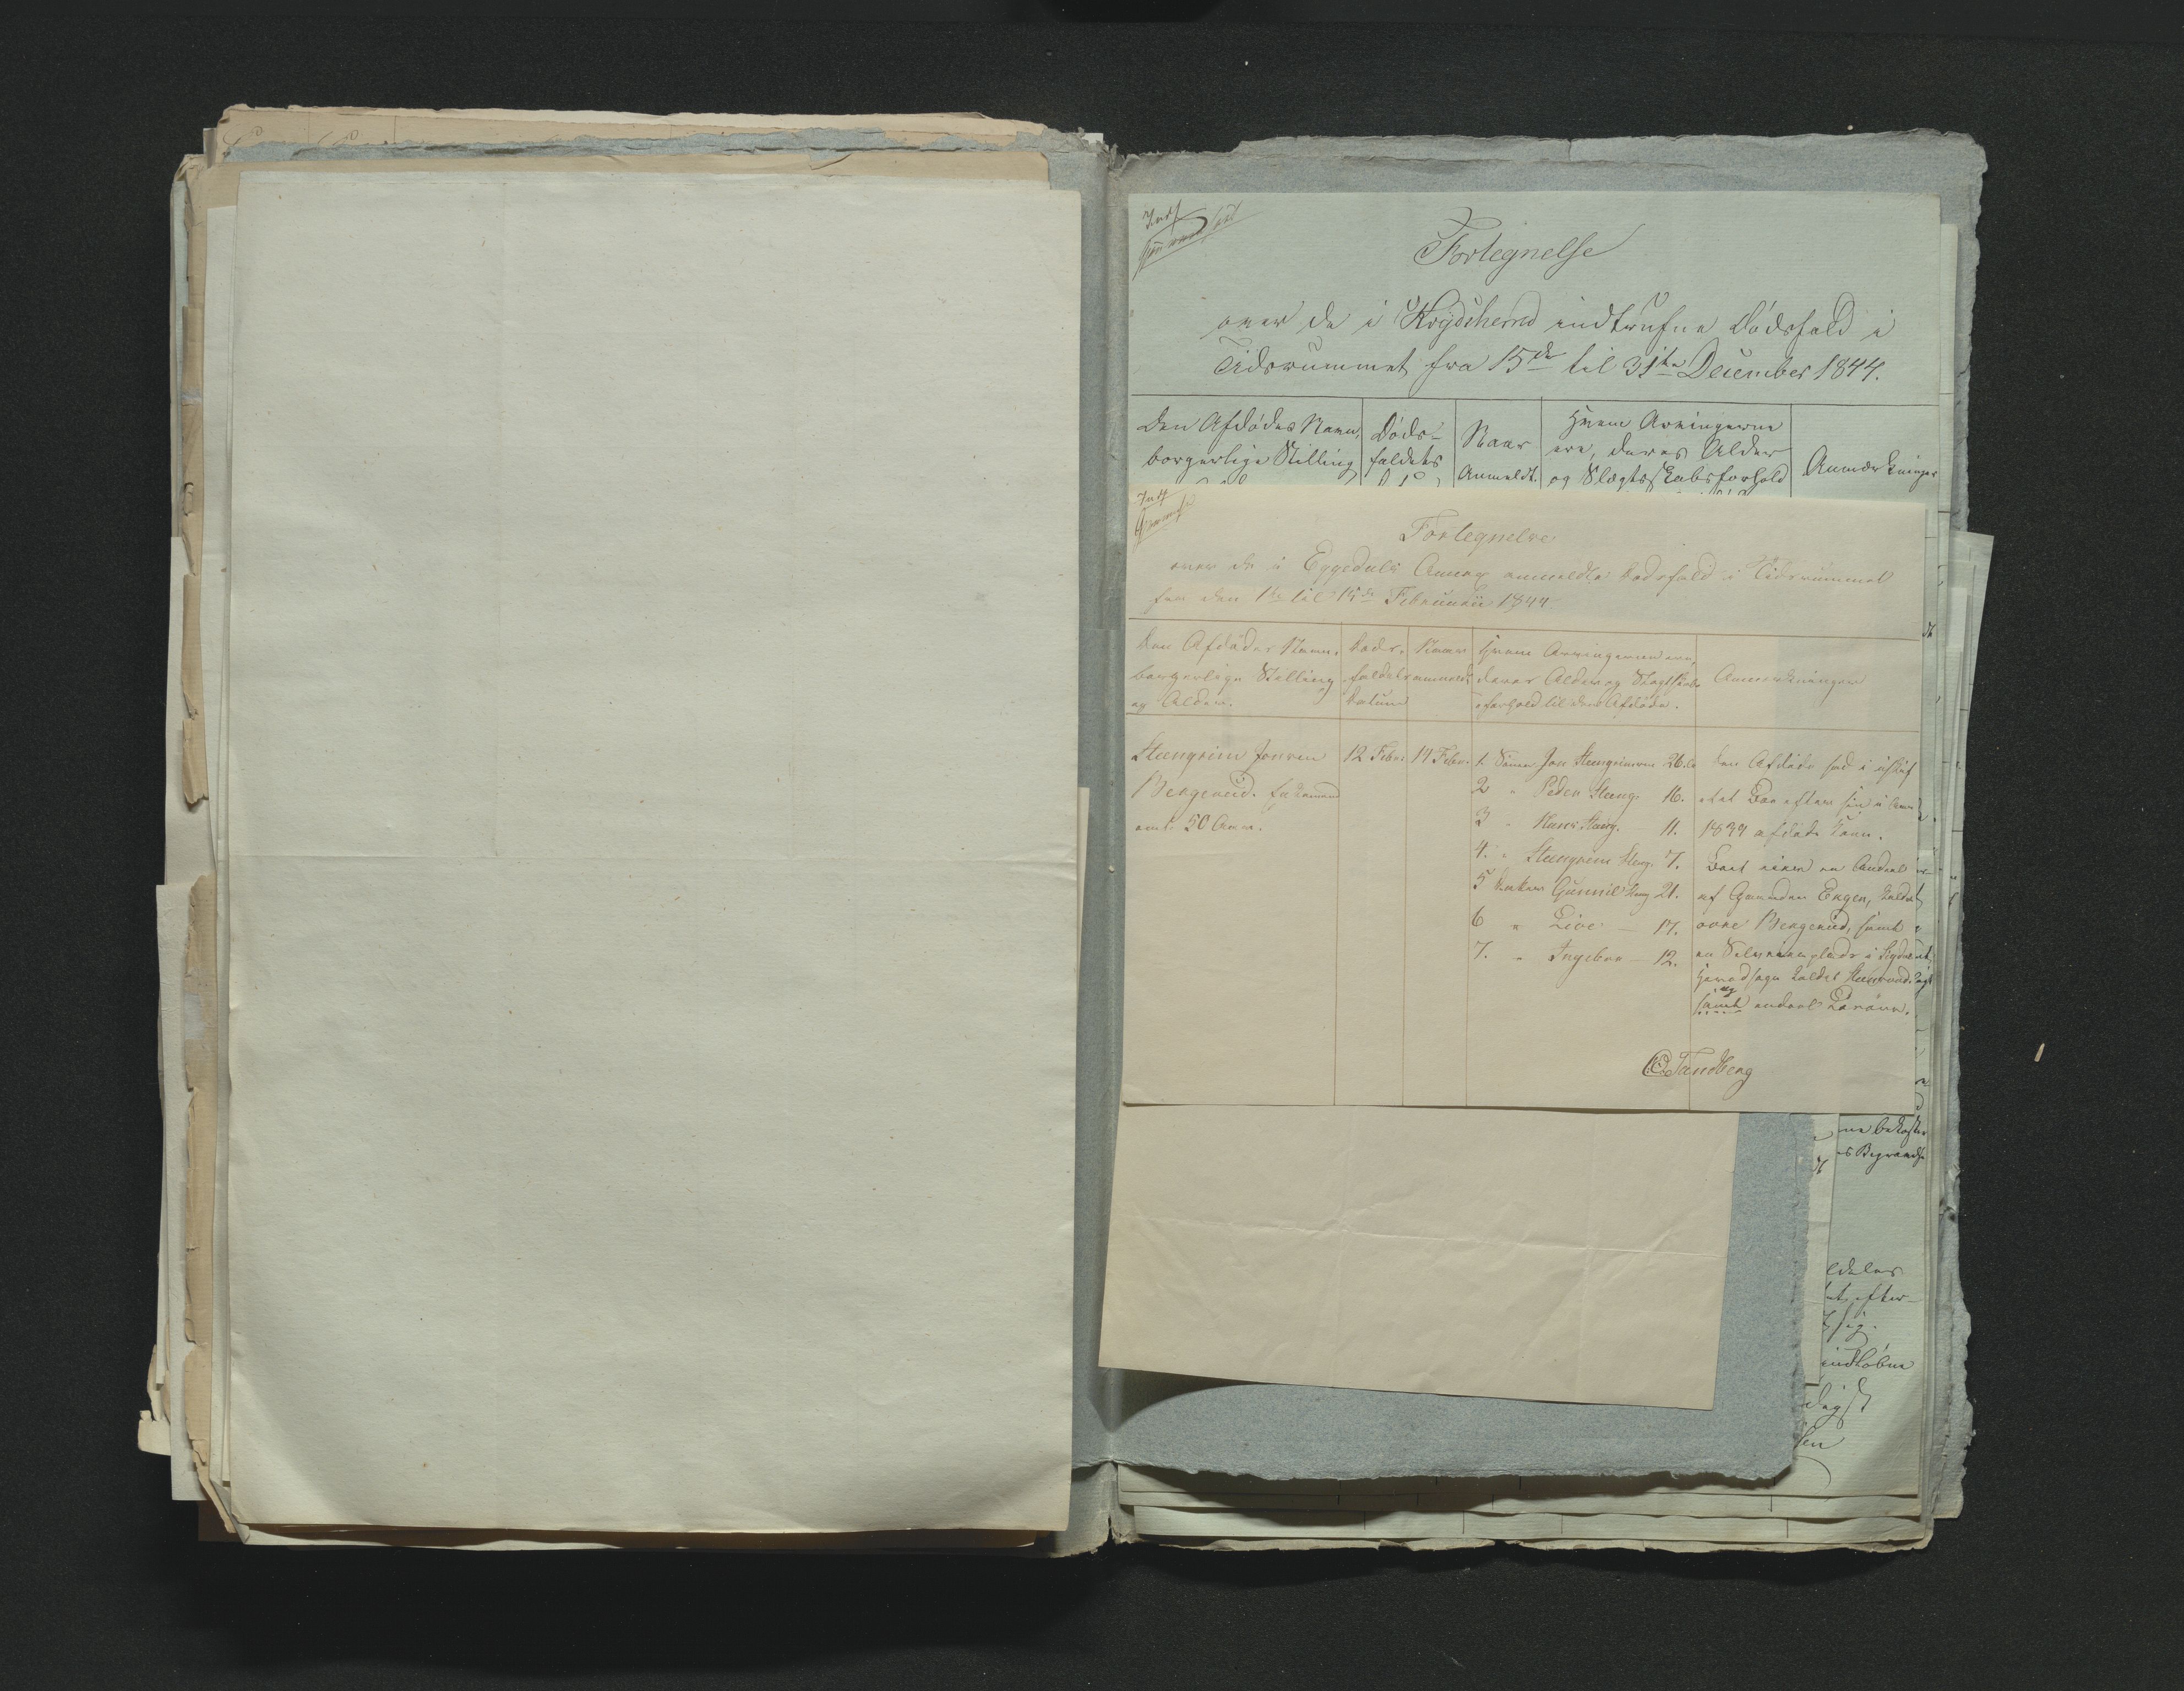 Indf
Forlegnelse
over de i Krydsherred indtrufne Dødsfald i
Tidsrummet fra 15de til 31te December 1844.
Den Afdødes Navn,
borgerlige Stilling
Døds-
faldets
Naar
Anmeldt.
Hvem Arvingerne
ere, deres Alder
og Slægtskabsforhold
Anmærkninger
Indf
Fortegnelse
over de i Eggedals Annex anmeldte Dødsfald i Tidsrummet
fra den 1te til 15de Februarii 1844.
Den Afdødes Navn,
borgerlige Stilling
og Alder.
Døds-
faldets
Datum
Naar
anmeldt
Hvem Arvingerne ere,
deres Alder og Slægtskabs
forhold til den Afdøde.
Anmærkninger
Steengrim Jonsen
Bergerud.
50 Aar.
12 Febr.
14 Febr.
1. Sønn Jon Steengrimsen 26.
2 " Peder Steeng. 16.
3 " Hans Steeng. 11.
4. " Steengrim Steeng. 7.
5 Datter Gunnil Steeng 21.
6 " Live — 17.
7. " Ingebor — 12.
Den Afdøde sad i uskif
-tet Boe efter sin i
1839 afdøde Kone.
Boet eier en Andeel
af Gaarden Engen, kaldet
øvre Bergerud, samt
en i Sigdal
kaldet
og
samt andeel Løsøre.
Tandberg
ne bekoster
es Begravelse
efter-
indløbne